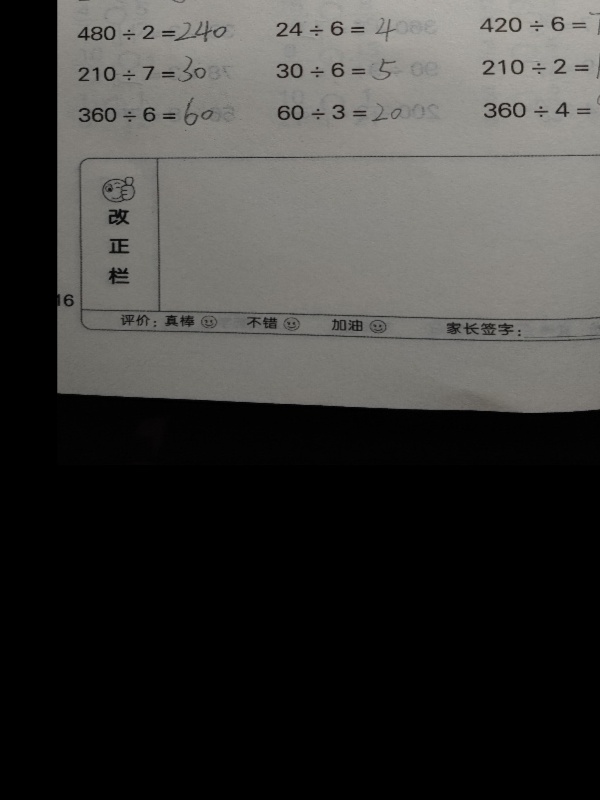 480÷2=240 24÷6=4 420÷6=
210÷7=30 30÷6=5 210÷2=
360÷6=60 60÷3=20 360÷4=
改
正
栏
16
评价：真棒 不错 加油 家长签字：